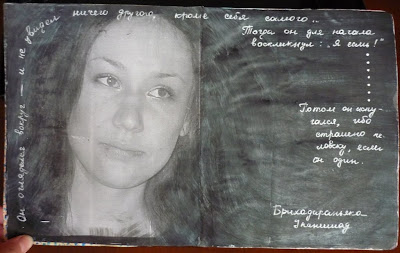 Он огляделся вокруг — и не увидел ничего другого, кроме себя самого...
Тогда он для начала
воскликнул: „Я есмь!"
Потом он испу-
гался, ибо
страшно че-
ловеку, если
он один.
Брихадараньяка
Упанишад